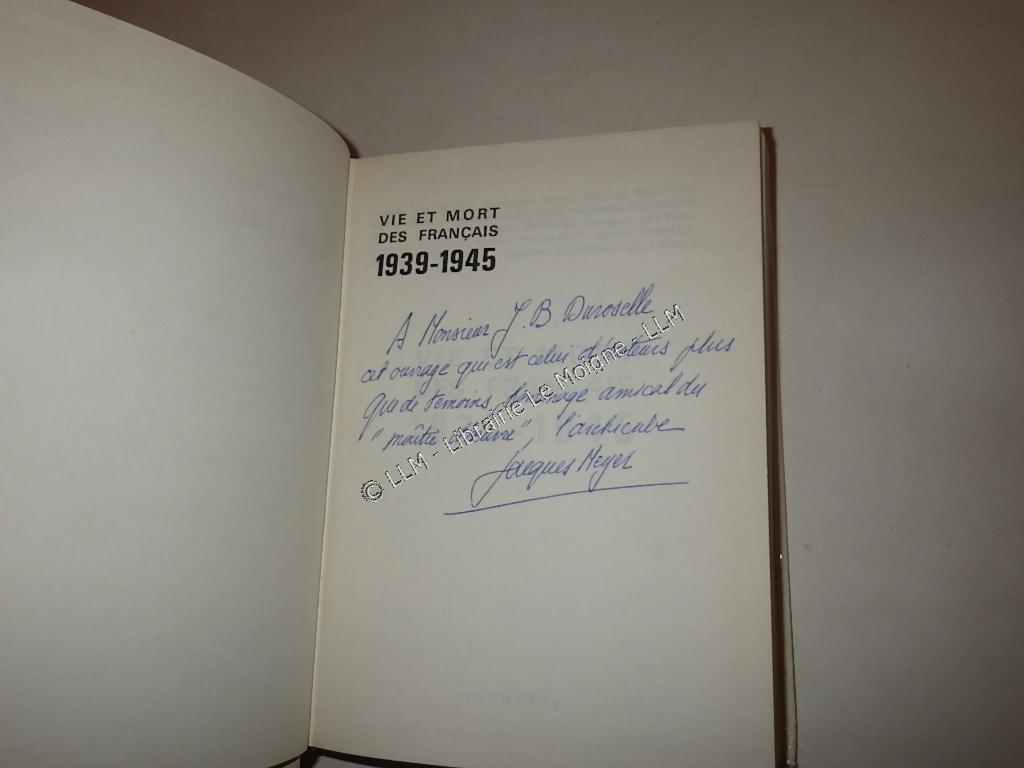 VIE ET MORT
DES FRANÇAIS
1939-1945
A Monsieur J. B. Duroselle
cet ouvrage qui est celui d'acteurs plus
que de témoins, hommage amical du
"maître d'œuvre", l'archicube
Jacques Meyer
© LLM - Librairie Le Moigne - LLM
HACHETTE